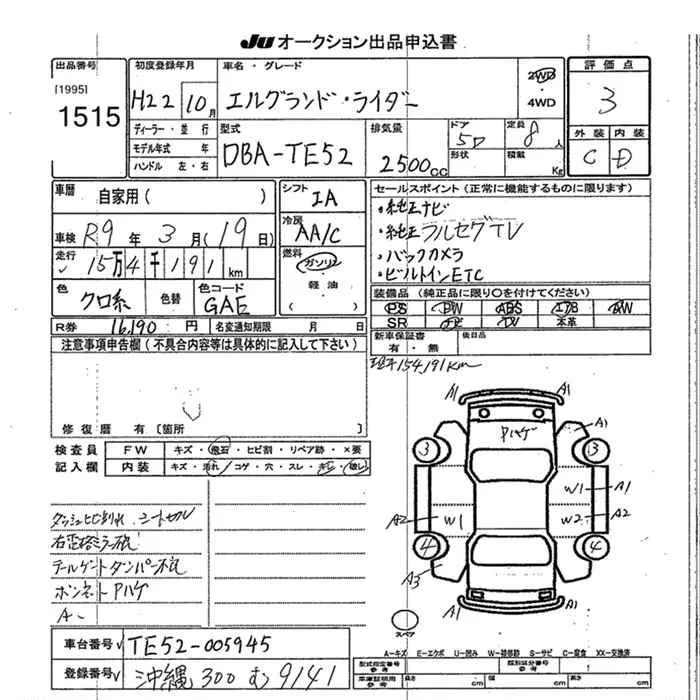 JU オークション出品申込書
出品番号 初度登録年月 車名・グレード 2WD ・ 4WD 評価点
[1995] 1515 H22 10月 エルグランド・ライダー 3
ディーラー・並行 型式 排気量 ドア 5D 定員 8人 外装 内装
モデル年式 年 形状 積載 Kg
ハンドル 左・右 DBA-TE52 2500cc C D
車歴 自家用( ) シフト IA セールスポイント(正常に機能するものに限ります)
車検 R9年 3月(19日) 冷房 AA/C
・純正ナビ
・純正フルセグTV
・バックカメラ
・ビルトインETC
走行 15万4千191km 燃料 ガソリン ・ 軽油 ・ ( )
色 クロ系 色替 色コード GAE
装備品(純正品に限り○を付けてください)
PS PW ABS エアB AW
SR TV 本革
R券 16,190円 名変通知期限 月 日
新車保証書 有・無 後日品
注意事項申告欄(不具合内容等は具体的に記入して下さい)
154,191km
修復歴 有〔箇所 〕
検査員記入欄 FW キズ・飛石・ヒビ割・リペア跡・×要
内装 キズ・汚れ・コゲ・穴・スレ・キレ・破レ
ダッシュヒビ割れ シートスレ
テールゲートダンパー不良
ボンネットPハゲ
A-
A1 A1
Pハゲ A1
3 3
W1 A1
A2 W1 W2 A2
4 4
A3
A1 A1
スペア
A-キズ E-エクボ U-凹み W-補修跡 S-サビ C-腐食 XX-交換済
車台番号 TE52-005945
登録番号 沖縄 300 む 9141
型式指定番号 参考 類別区分番号 参考
車庫証明用 参考 長さ cm 幅 cm 高さ cm